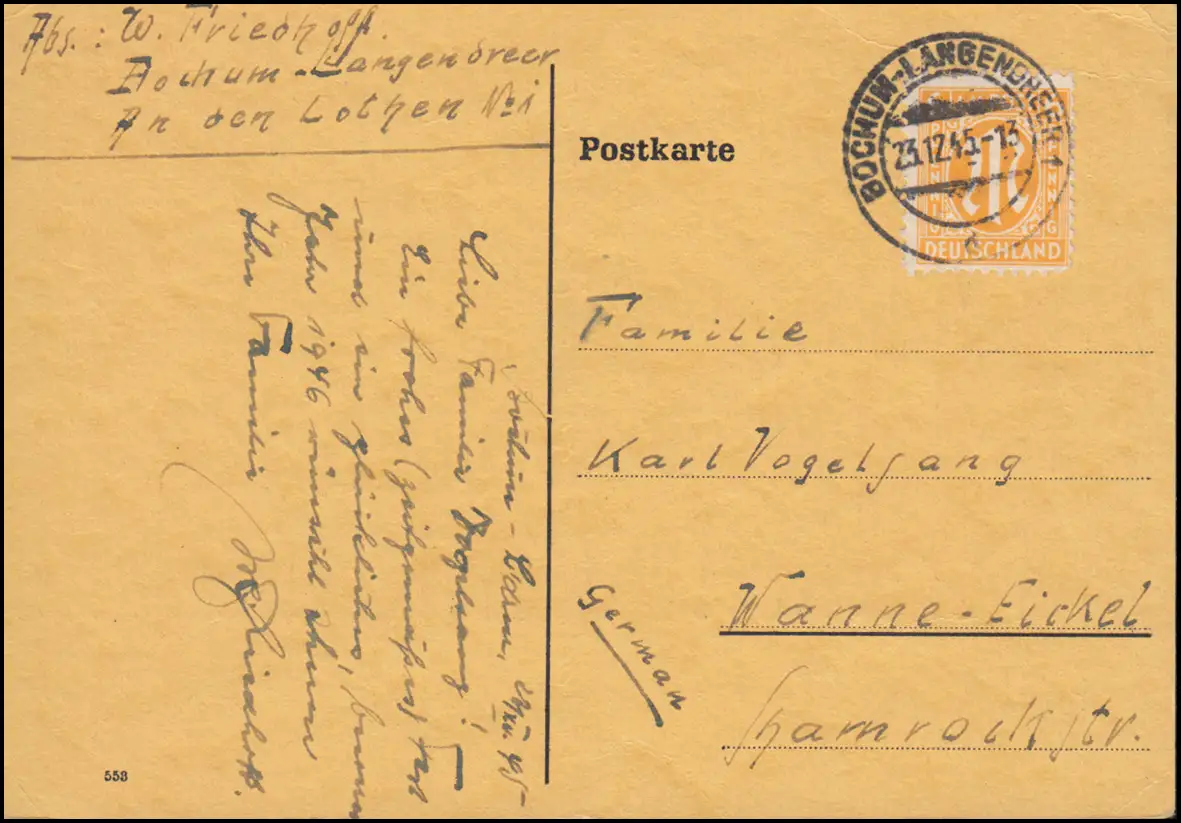 Abs.: W. Friedhoff.
Bochum-Langendreer
An den Lothen No 1
Postkarte
BOCHUM-LANGENDREER 1
23.12.45-13
PFENNIG
PFENNIG
DEUTSCHLAND
Familie
Karl Vogelsang
Wanne-Eickel
Shamrockstr.
German
Bochum-
Liebe Familie Vogelsang!
Ein frohes (zeitgemäßes) Fest
und ein glückliches,
Jahr 1946 wünscht Ihnen
Ihre Familie
W. Friedhoff.
558